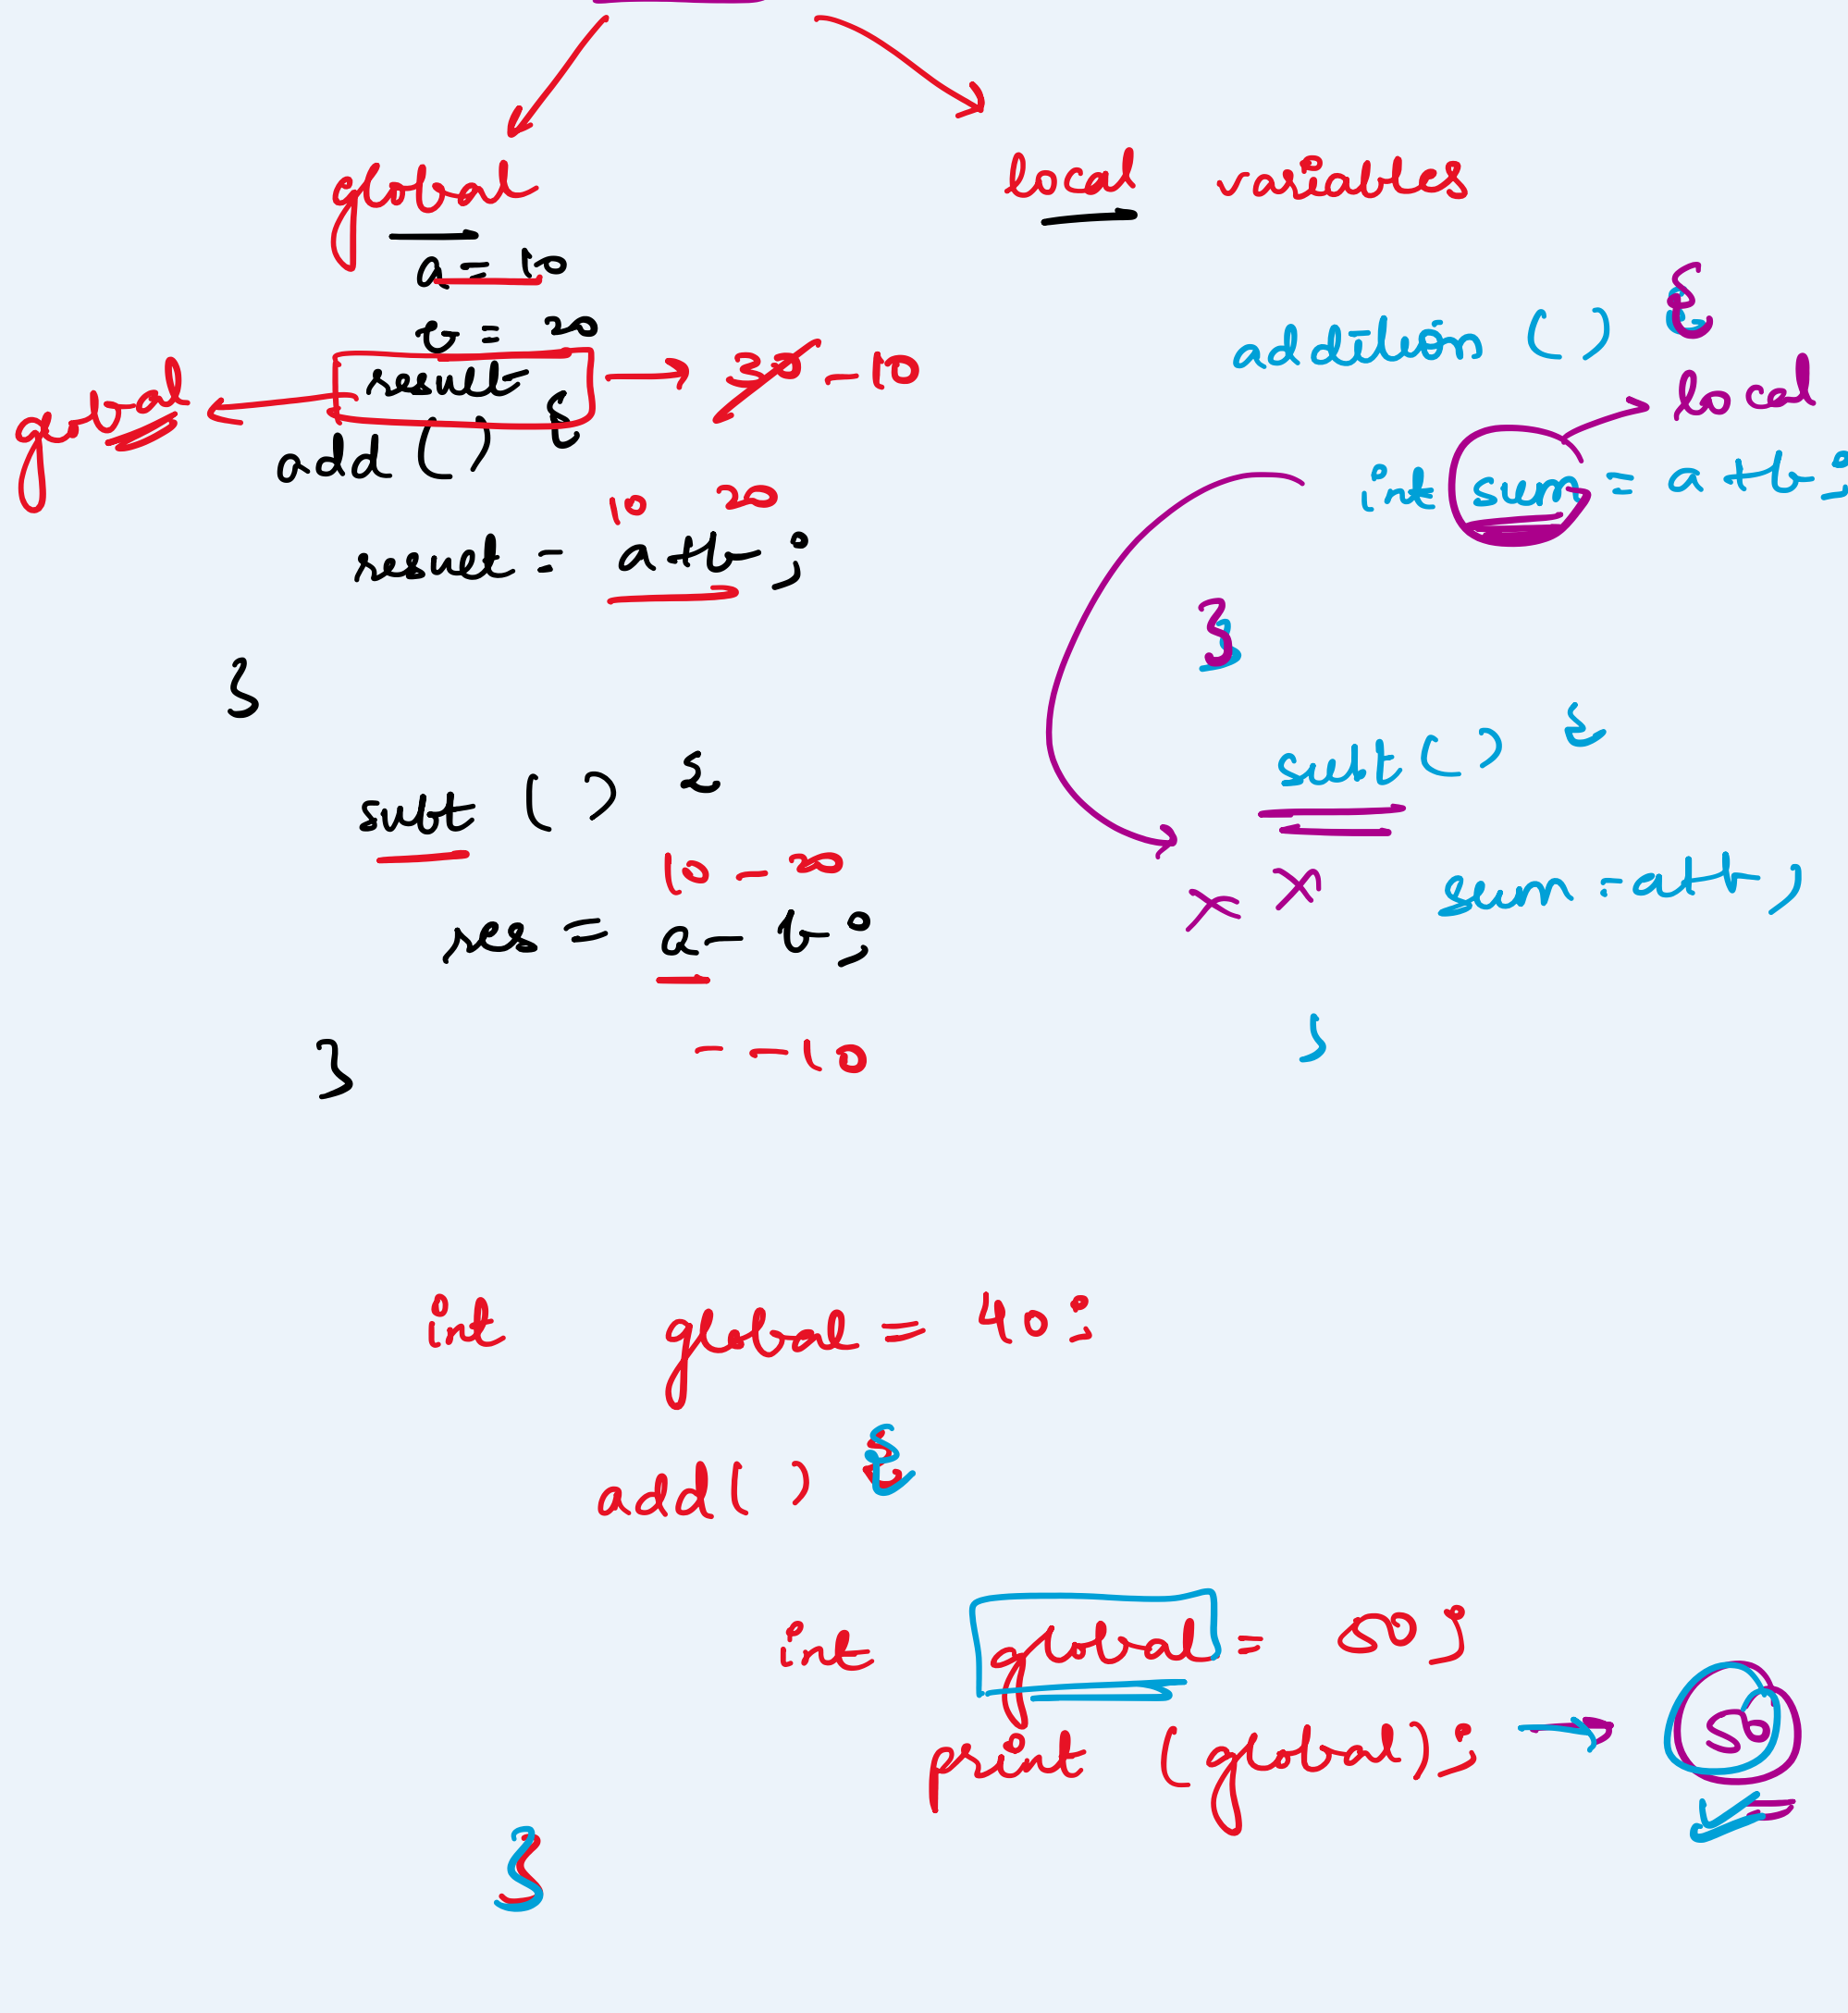 global
a = 10
b = 20
result
global
30 -10
add ( ) {
10 20
result = a+b ;
}
subt ( ) {
10 - 20
res = a - b ;
- -10
}
local variables
addition ( ) {
local
int sum = a+b ;
}
subt ( ) {
x x sum = a+b ;
}
int global = 40 ;
add ( ) {
int global = 50 ;
print (global) ; → 50
}